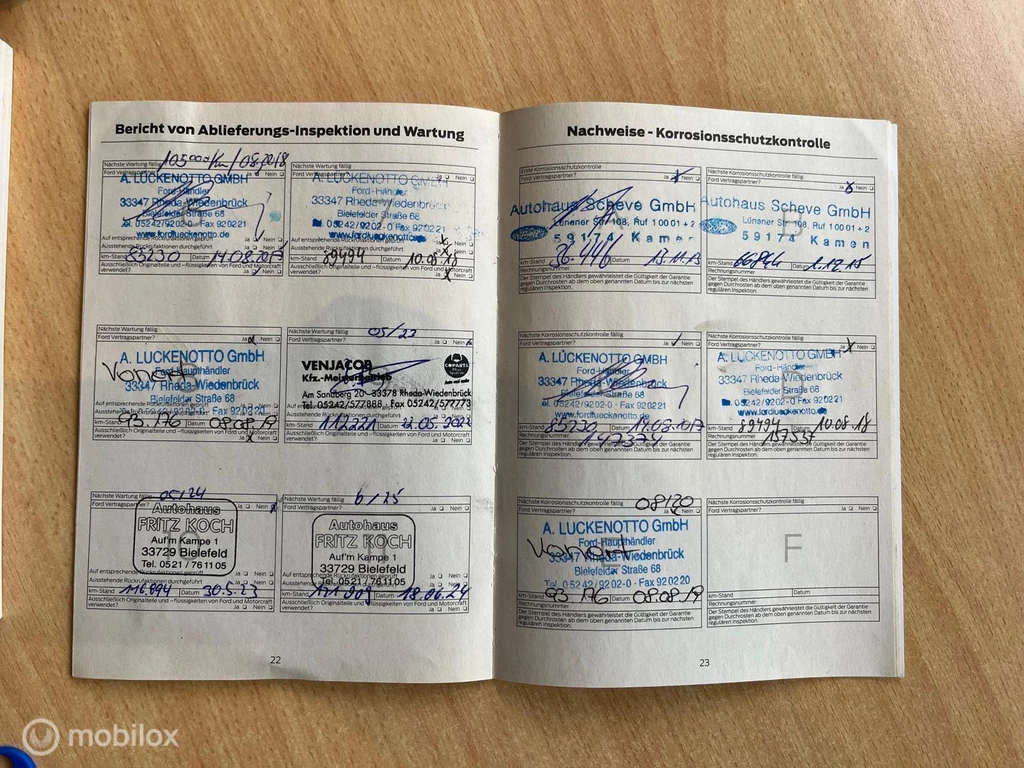 Bericht von Ablieferungs-Inspektion und Wartung
Nächste Wartung fällig 105000 Km/08.2018
Ford Vertragspartner? Ja Nein
A. LÜCKENOTTO GMBH
Ford-Händler
33347 Rheda-Wiedenbrück
Bielefelder Straße 68
05242/9202-0 - Fax 920221
www.fordlueckenotto.de
Auf entsprechende Rückrufaktionen geprüft Ja Nein
Ausstehende Rückrufaktionen durchgeführt Ja Nein
km-Stand 85230 Datum 14.08.2017
Ausschließlich Originalteile und -flüssigkeiten von Ford und Motorcraft
verwendet? Ja Nein
Nächste Wartung fällig
A. LÜCKENOTTO GMBH
Ford-Händler
33347 Rheda-Wiedenbrück
Bielefelder Straße 68
05242/9202-0 - Fax 920221
www.fordlueckenotto
km-Stand 89494 Datum 10.08.18
Ausschließlich Originalteile und -flüssigkeiten von Ford und Motorcraft
verwendet? Ja Nein
Nächste Wartung fällig
Ford Vertragspartner? Ja Nein
A. LÜCKENOTTO GmbH
Ford-Haupthändler
33347 Rheda-Wiedenbrück
Bielefelder Straße 68
05242/9202-0 - Fax 920220
km-Stand 93 176 Datum 08.08.19
Ausschließlich Originalteile und -flüssigkeiten von Ford und Motorcraft
verwendet? Ja Nein
Nächste Wartung fällig 05/23
Ford Vertragspartner? Ja Nein
VENJACOB
Kfz.-Meisterbetrieb
Am Sandberg 20 - 33378 Rheda-Wiedenbrück
Tel. 05242/577888, Fax 05242/577773
km-Stand 112221 Datum 22.05.2022
Ausschließlich Originalteile und -flüssigkeiten von Ford und Motorcraft
verwendet? Ja Nein
Nächste Wartung fällig 05/24
Ford Vertragspartner? Ja Nein
Autohaus
FRITZ KOCH
Auf'm Kampe 1
33729 Bielefeld
Tel. 0521 / 76 11 05
Auf entsprechende Rückrufaktionen geprüft Ja Nein
Ausstehende Rückrufaktionen durchgeführt Ja Nein
km-Stand 116894 Datum 30.5.23
Ausschließlich Originalteile und -flüssigkeiten von Ford und Motorcraft
verwendet? Ja Nein
Nächste Wartung fällig 6/25
Ford Vertragspartner? Ja Nein
Autohaus
FRITZ KOCH
Auf'm Kampe 1
33729 Bielefeld
Tel. 0521 / 76 11 05
Auf entsprechende Rückrufaktionen geprüft Ja Nein
Ausstehende Ja Nein
km-Stand Datum 18.06.24
Ausschließlich Originalteile und -flüssigkeiten von Ford und Motorcraft
verwendet? Ja Nein
22
Nachweise - Korrosionsschutzkontrolle
Erste Korrosionsschutzkontrolle
Ford Vertragspartner? Ja Nein
Autohaus Scheve GmbH
Lünener Str. 108, Ruf 1 00 01 + 2
59174 Kamen
km-Stand 36.446 Datum 13.11.13
Rechnungsnummer
Der Stempel des Händlers gewährleistet die Gültigkeit der Garantie
gegen Durchrosten ab dem oben genannten Datum bis zur nächsten
regulären Inspektion.
Nächste Korrosionsschutzkontrolle fällig
Ford Vertragspartner? Ja Nein
Autohaus Scheve GmbH
Lünener Straße 108, Ruf 1 00 01 + 2
59174 Kamen
km-Stand Datum 1.12.15
Rechnungsnummer
Der Stempel des Händlers gewährleistet die Gültigkeit der Garantie
gegen Durchrosten ab dem oben genannten Datum bis zur nächsten
regulären Inspektion.
Nächste Korrosionsschutzkontrolle fällig
Ford Vertragspartner? Ja Nein
A. LÜCKENOTTO GMBH
Ford-Händler
33347 Rheda-Wiedenbrück
Bielefelder Straße 68
05242/9202-0 - Fax 920221
www.fordlueckenotto.de
km-Stand 85230 Datum 14.08.2017
Rechnungsnummer
Der Stempel des Händlers gewährleistet die Gültigkeit der Garantie
gegen Durchrosten ab dem oben genannten Datum bis zur nächsten
regulären Inspektion.
Nächste Korrosionsschutzkontrolle fällig
Ford Vertragspartner? Ja Nein
A. LÜCKENOTTO GMBH
Ford-Händler
33347 Rheda-Wiedenbrück
Bielefelder Straße 68
05242/9202-0 - Fax 920221
www.fordlueckenotto.de
km-Stand 89494 Datum 10.08.18
Rechnungsnummer 157537
Der Stempel des Händlers gewährleistet die Gültigkeit der Garantie
gegen Durchrosten ab dem oben genannten Datum bis zur nächsten
regulären Inspektion.
Nächste Korrosionsschutzkontrolle fällig 08/20
Ford Vertragspartner? Ja Nein
A. LÜCKENOTTO GmbH
Ford-Haupthändler
33347 Rheda-Wiedenbrück
Bielefelder Straße 68
Tel. 05242/9202-0 - Fax 920220
km-Stand 93 176 Datum 08.08.19
Rechnungsnummer
Der Stempel des Händlers gewährleistet die Gültigkeit der Garantie
gegen Durchrosten ab dem oben genannten Datum bis zur nächsten
regulären Inspektion.
Nächste Korrosionsschutzkontrolle fällig
Ford Vertragspartner? Ja Nein
F
km-Stand Datum
Rechnungsnummer
Der Stempel des Händlers gewährleistet die Gültigkeit der Garantie
gegen Durchrosten ab dem oben genannten Datum bis zur nächsten
regulären Inspektion.
23
mobilox